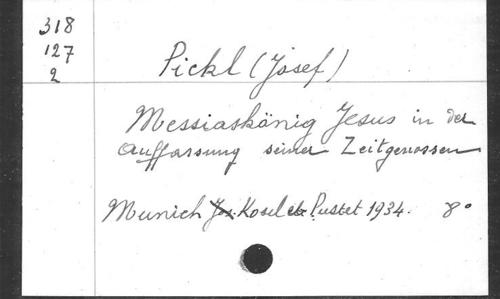 318
127
2
Pickl (Josef)
Messiaskönig Jesus in der
Auffassung seiner Zeitgenossen
Munich Jos. Kosel et Pustet 1934. 8°